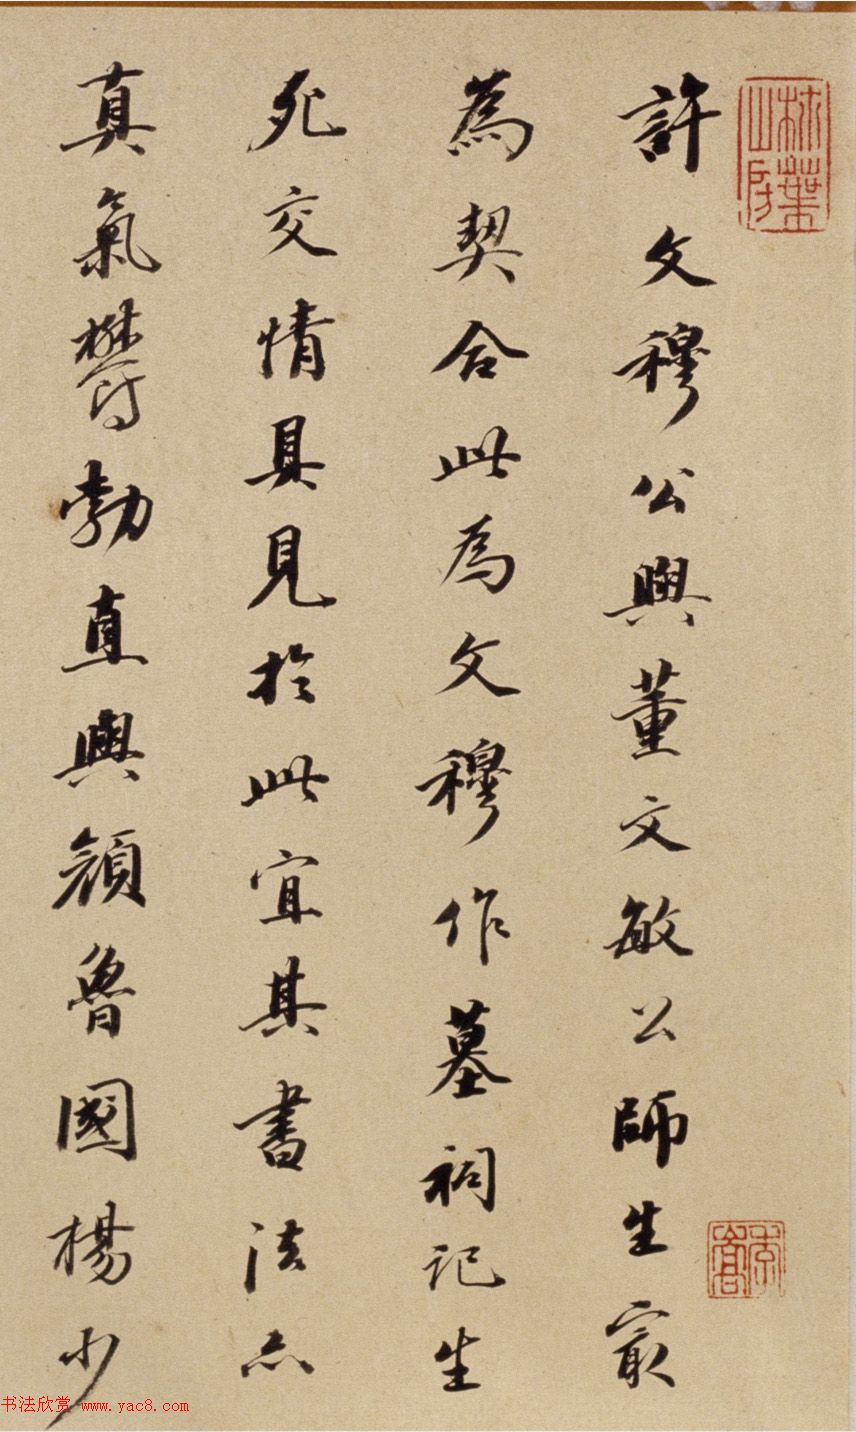 許文穆公與董文敏公師生最
為契合此為文穆作墓祠記生
死交情具見於此宜其書法亦
真氣鬱勃直與顏魯國楊少
书法欣赏 www.yac8.com